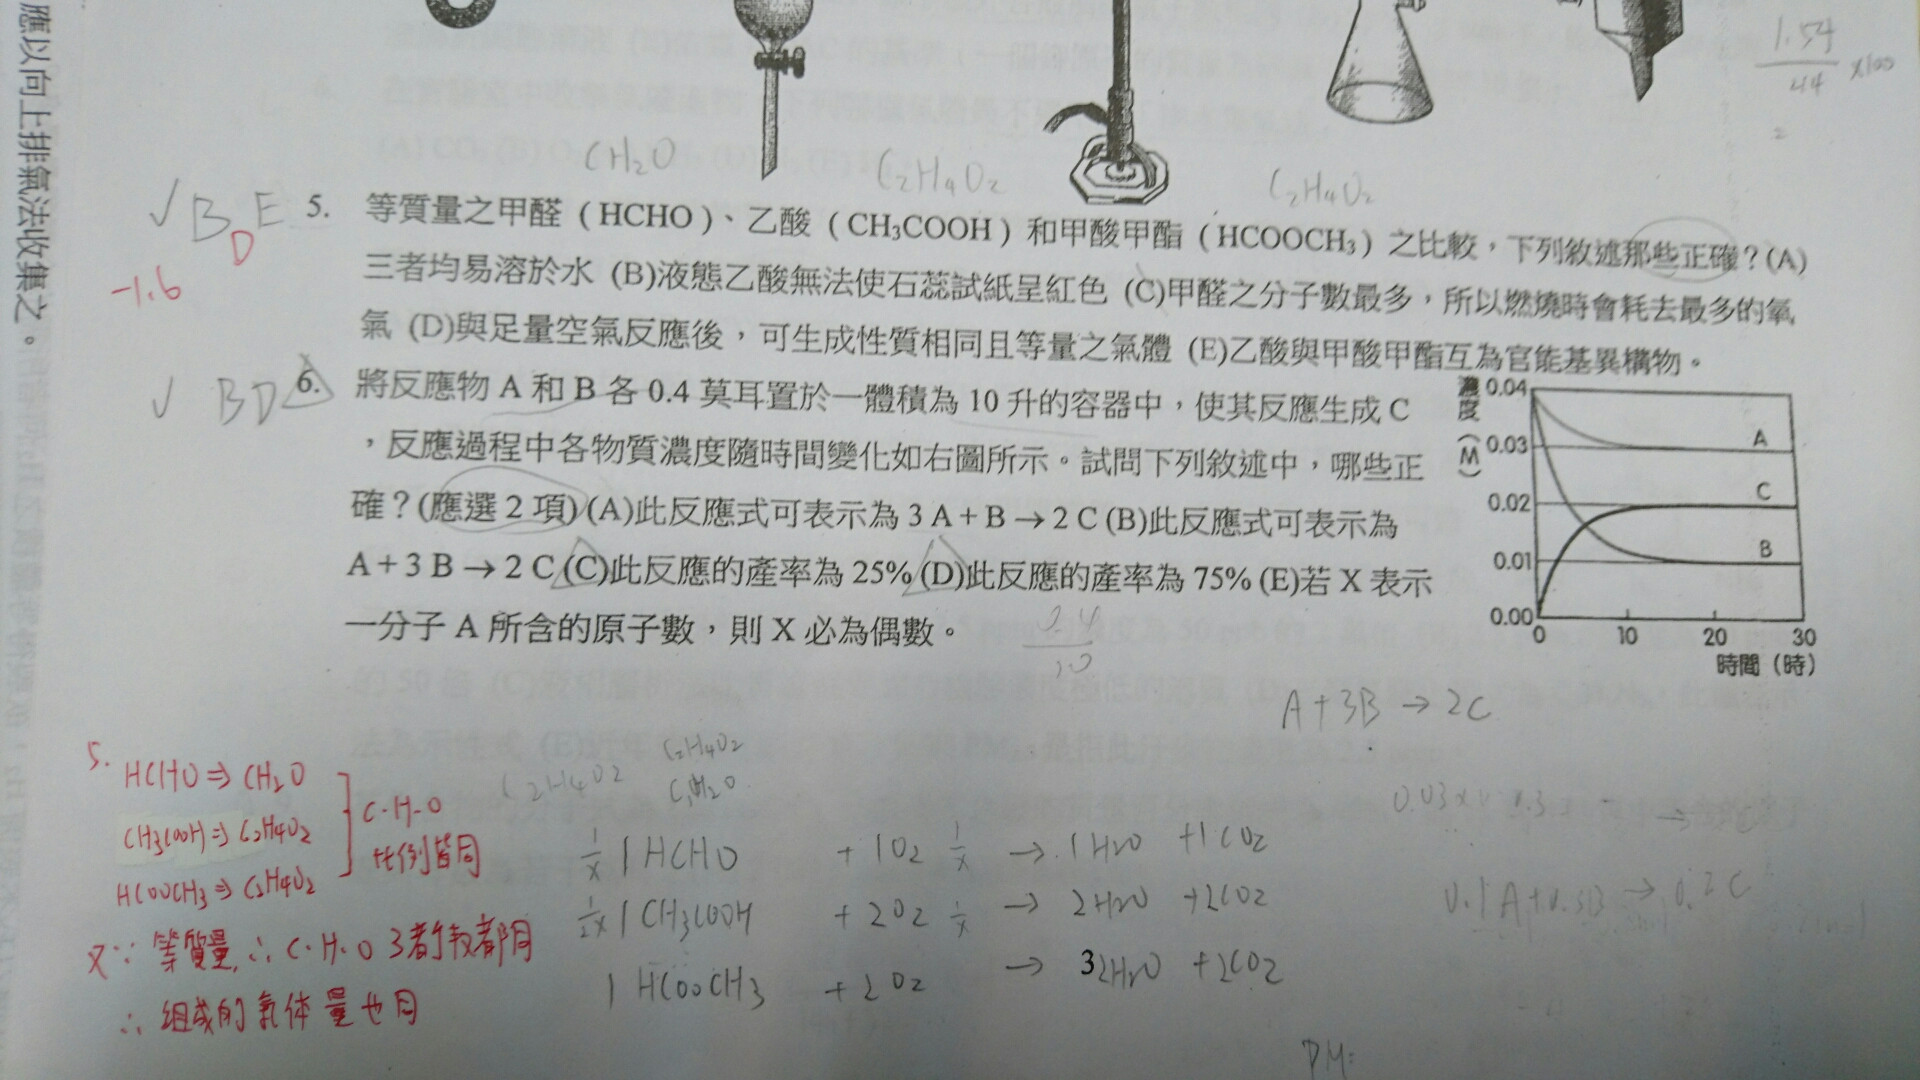 應以向上排氣法收集之。
1.54
44
×100
=
CH2O
C2H4O2
C2H4O2
✓ B D E
-1.6
5. 等質量之甲醛(HCHO)、乙酸(CH₃COOH)和甲酸甲酯(HCOOCH₃)之比較,下列敘述那些正確?(A)
三者均易溶於水 (B)液態乙酸無法使石蕊試紙呈紅色 (C)甲醛之分子數最多,所以燃燒時會耗去最多的氧
氣 (D)與足量空氣反應後,可生成性質相同且等量之氣體 (E)乙酸與甲酸甲酯互為官能基異構物。
✓ BD
6. 將反應物 A 和 B 各 0.4 莫耳置於一體積為 10 升的容器中,使其反應生成 C
,反應過程中各物質濃度隨時間變化如右圖所示。試問下列敘述中,哪些正
確?(應選 2 項) (A)此反應式可表示為 3 A + B → 2 C (B)此反應式可表示為
A + 3 B → 2 C (C)此反應的產率為 25% (D)此反應的產率為 75% (E)若 X 表示
一分子 A 所含的原子數,則 X 必為偶數。
濃度(M)
0.04
0.03
0.02
0.01
0.00
A
C
B
0 10 20 30
時間(時)
0.4
10
A+3B → 2C
5. HCHO ⇒ CH2O
CH3COOH ⇒ C2H4O2
HCOOCH3 ⇒ C2H4O2
C-H-O
比例皆同
又∵ 等質量,∴ C.H.O 3者个数都同
∴ 組成的氣体量也同
C2H4O2
C2H4O2
1/x 1 HCHO + 1O2 1/x → 1H2O + 1CO2
1/2x 1 CH3COOH + 2O2 1/x → 2H2O + 2CO2
1 HCOOCH3 + 2O2 → 32H2O + 2CO2
0.1A+0.3B → 0.2C
PM: